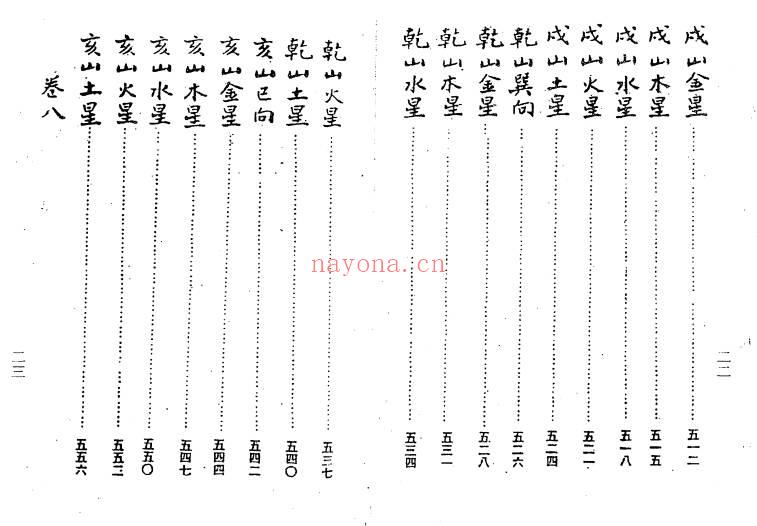 戌山金星………五一二
戌山木星………五一五
戌山水星………五一八
戌山火星………五二一
戌山土星………五二四
乾山巽向………五二六
乾山金星………五二八
乾山木星………五三一
乾山水星………五三四
二二
乾山火星………五三七
乾山土星………五四〇
亥山巳向………五四二
亥山金星………五四四
亥山木星………五四七
亥山水星………五五〇
亥山火星………五五三
亥山土星………五五六
卷八
二三
nayona.cn